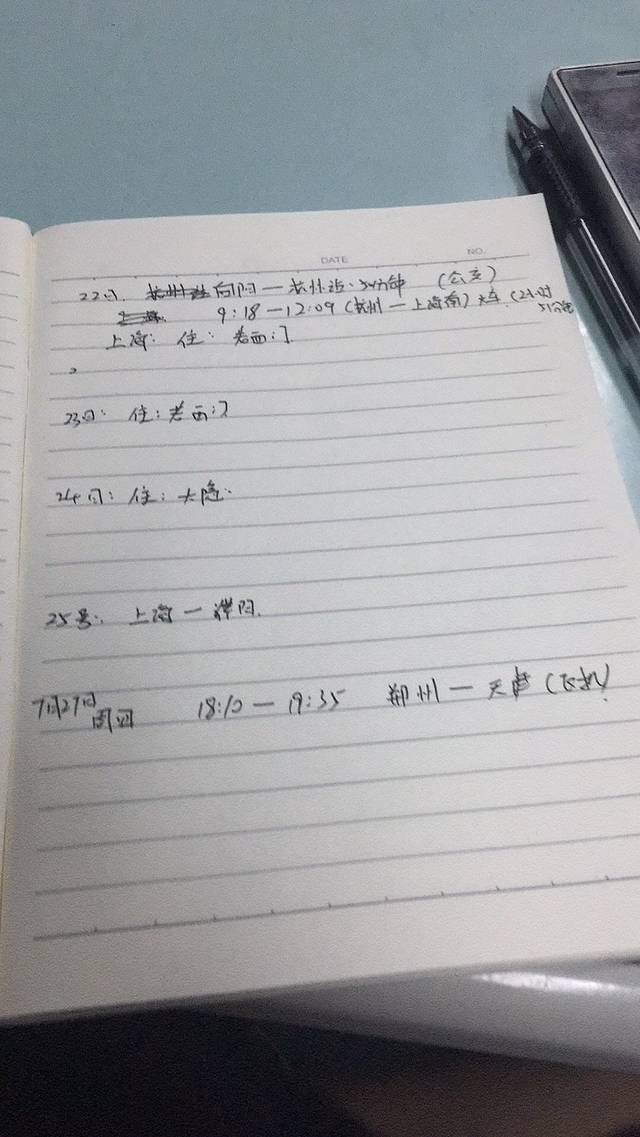 DATE NO.
22日. 向阳一杭州站.30分钟 (公交)
9:18—12:09 (杭州—上海南) 火车 (2小时
51分钟
上海: 住: 老西门
23日: 住: 老西门
24日: 住: 大隐.
25号: 上海一溧阳.
7月27日
周四 18:10—19:35 郑州一天津 (飞机)